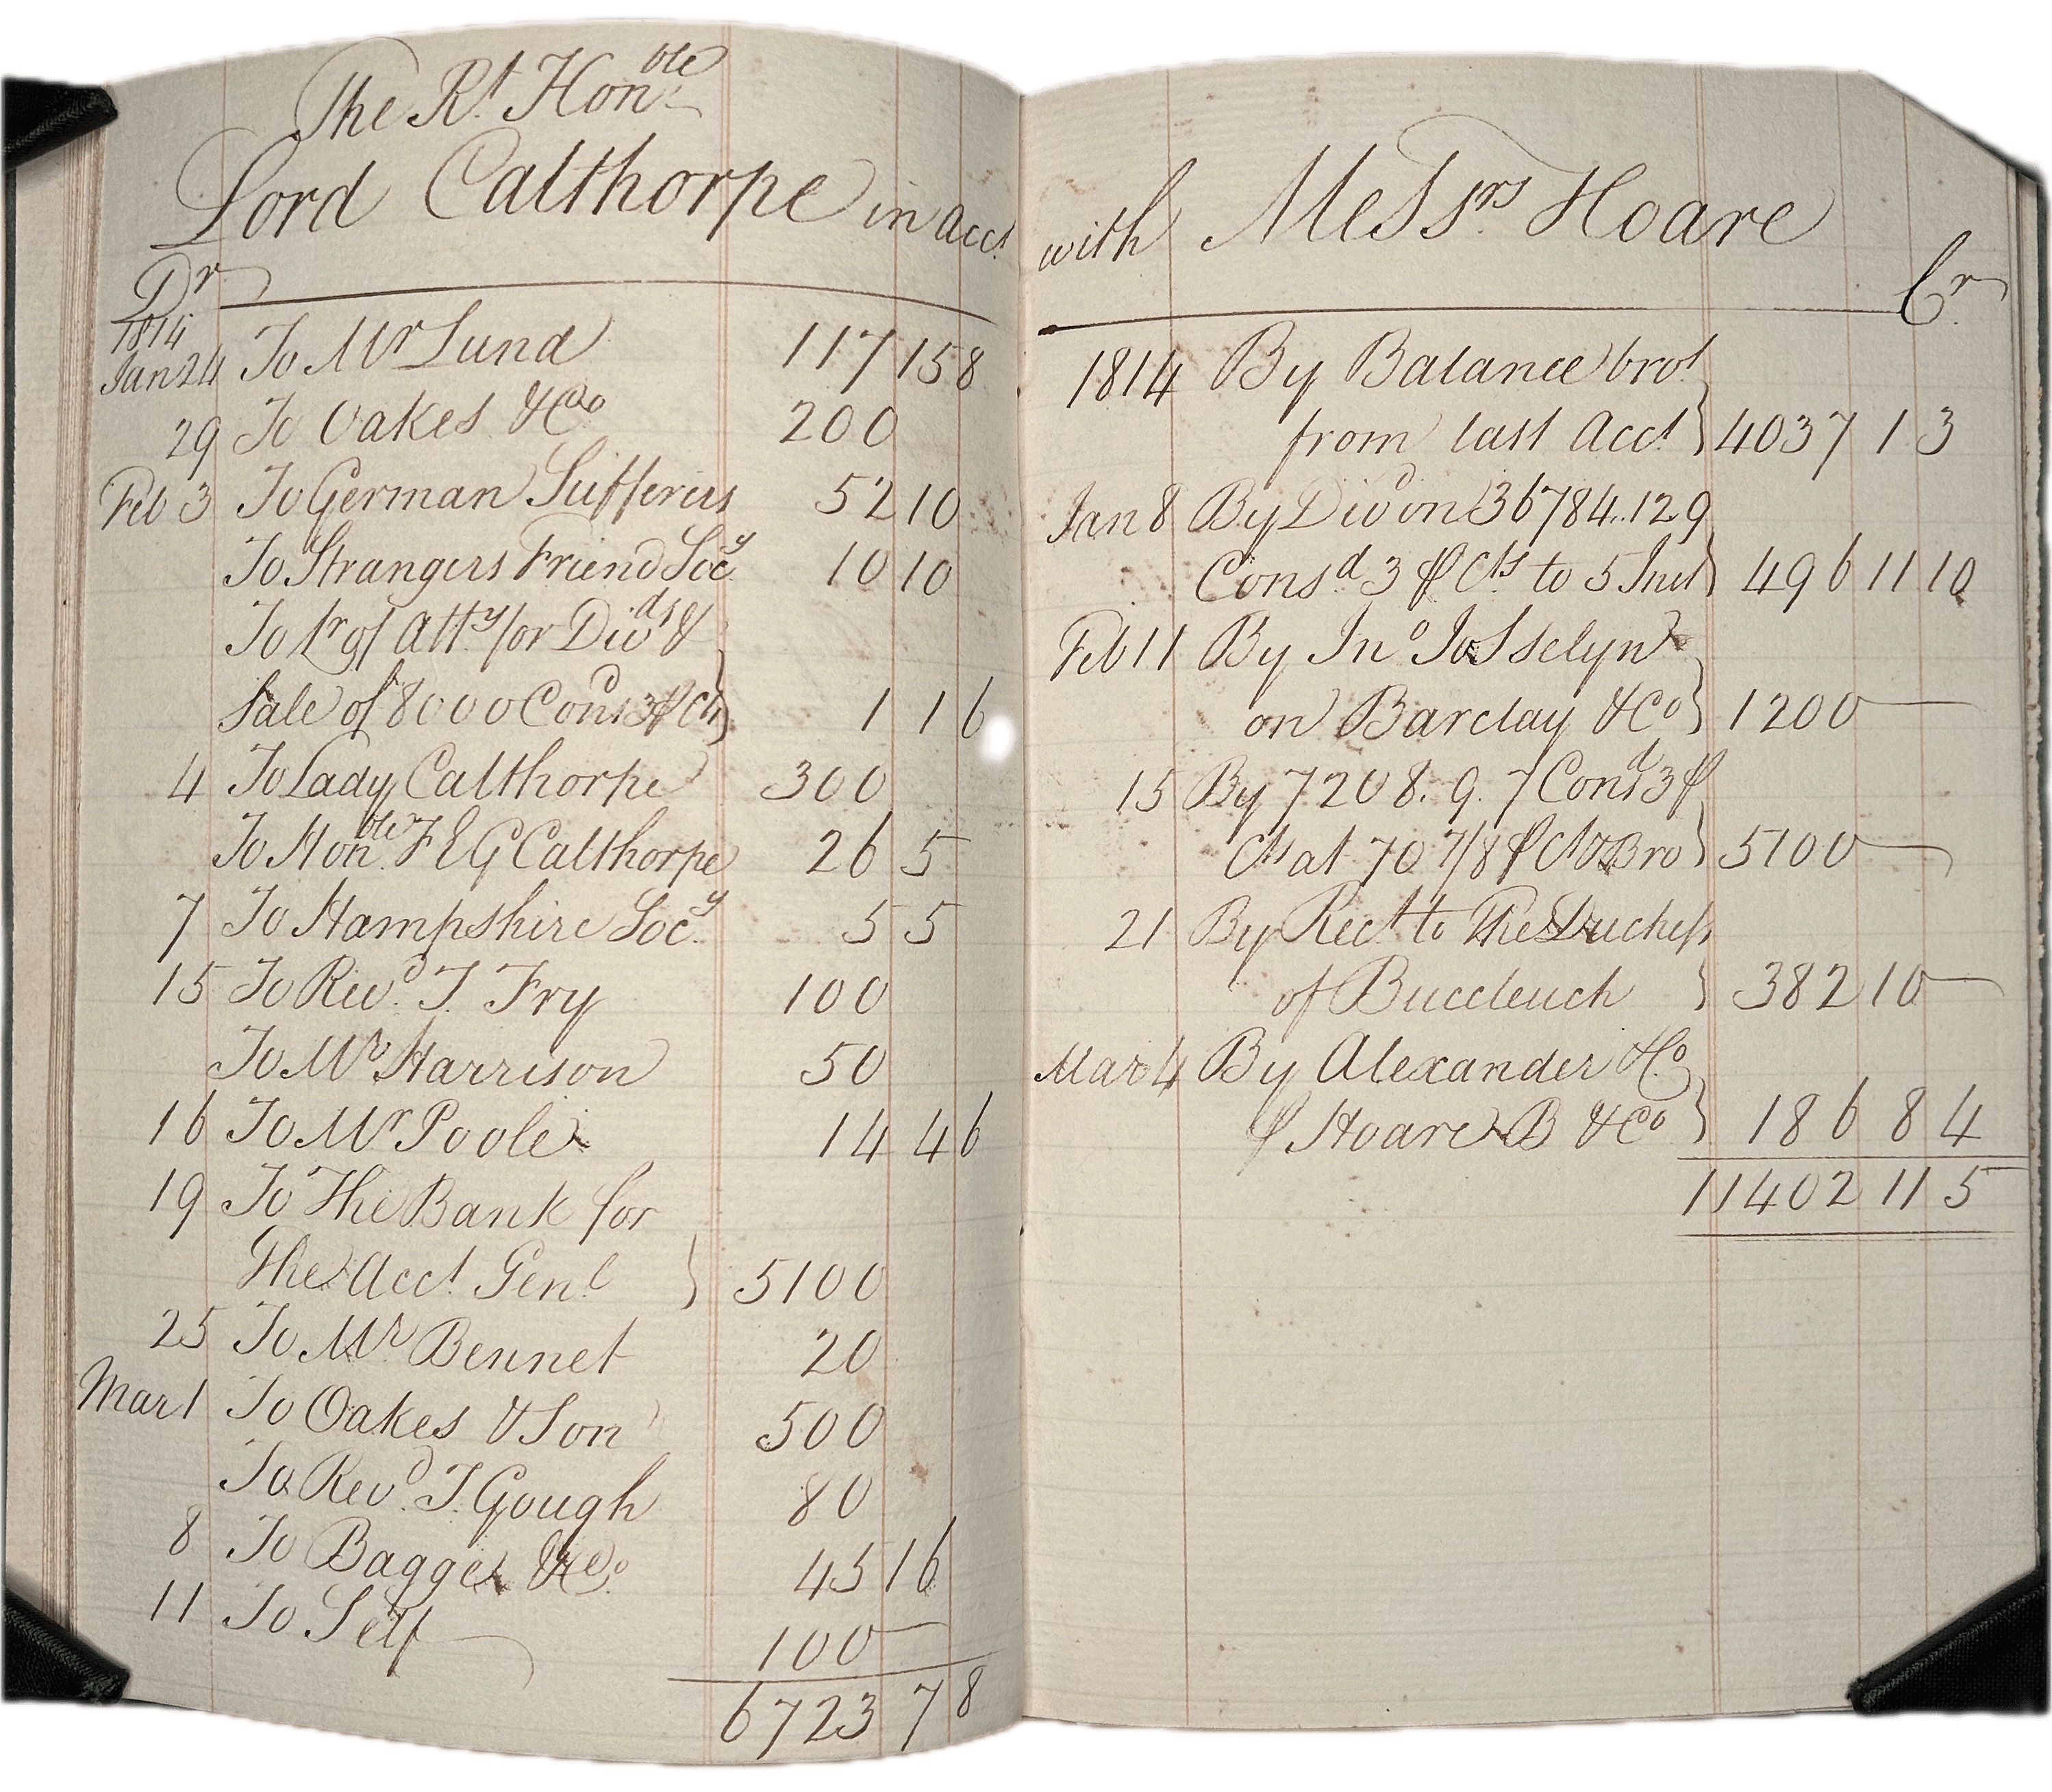 The Rt. Honble
Lord Calthorpe in acct.
Dr
1814
Jan 24 To Mr Lund 117 15 8
29 To Oakes & Co 200
Feb 3 To German Sufferers 52 10
To Strangers Friend Socy. 10 10
To Pr of Atty. for Divds &
Sale of 8000 Consd 3 ⅌ Cts } 1 1 6
4 To Lady Calthorpe 300
To Honble. F E G Calthorpe 26 5
7 To Hampshire Socy. 5 5
15 To Revd. T. Fry 100
To Mr. Harrison 50
16 To Mr Poole 14 4 6
19 To The Bank for
The Acct. Genl. } 5100
25 To Mr. Bennet 20
Mar 1 To Oakes & Son 500
To Revd. T. Gough 80
8 To Bagge & Co. 45 16
11 To Self 100
6723 7 8
with Messrs. Hoare
Cr.
1814 By Balance brot.
from last Acct. } 4037 1 3
Jan 8 By Divd on 36784..12 9
Consd. 3 ⅌ Cts. to 5 Inst } 496 11 10
Feb 11 By Jno Josselyn
on Barclay & Co } 1200
15 By 7208. 9. 7 Consd 3 ⅌
Cts at 70 7/8 ⅌ Ct Bro } 5100
21 By Rect. to The Duchess
of Buccleuch } 382 10
Mar 4 By Alexander & Co.
⅌ Hoare B & Co } 186 8 4
11402 11 5